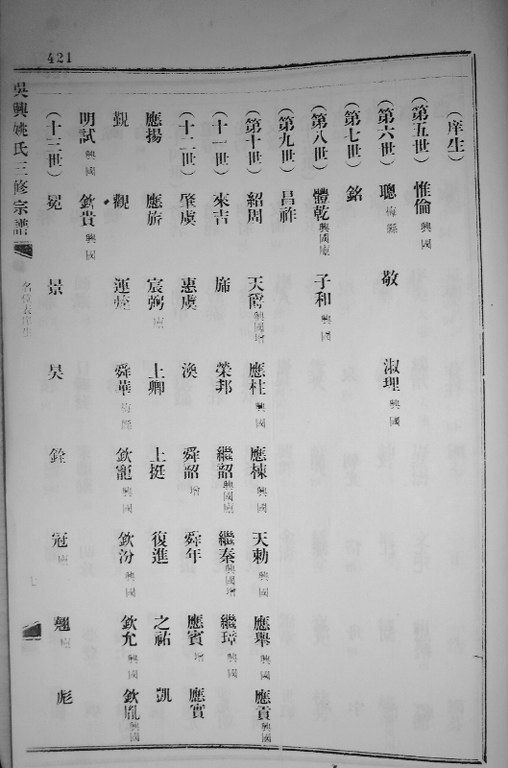 421
(庠生)
(第五世) 惟倫 興國
(第六世) 聰 梅縣 敬 淑理 興國
(第七世) 銘
(第八世) 體乾 興國廩 子和 興國
(第九世) 昌祚
(第十世) 紹周 天爵 興國增 應柱 興國 應棟 興國 天勅 興國 應舉 興國 應貢 興國
(十一世) 來吉 旆 榮邦 繼韶 興國廩 繼秦 興國增 繼璋 興國
(十二世) 肇虞 惠虞 渙 舜韶 增 舜年 應賓 增 應實
應揚 應旂 宸弼 廩 上卿 上挺 復進 之祐 凱
觀 觀 運 舜華 欽寵 興國 欽汾 興國 欽允 興國 欽胤 興國
明試 興國 欽貴 興國
(十三世) 冕 景 昊 銓 冠 廩 翹 廩 彪
吳興姚氏三修宗譜
名位表庠生
七